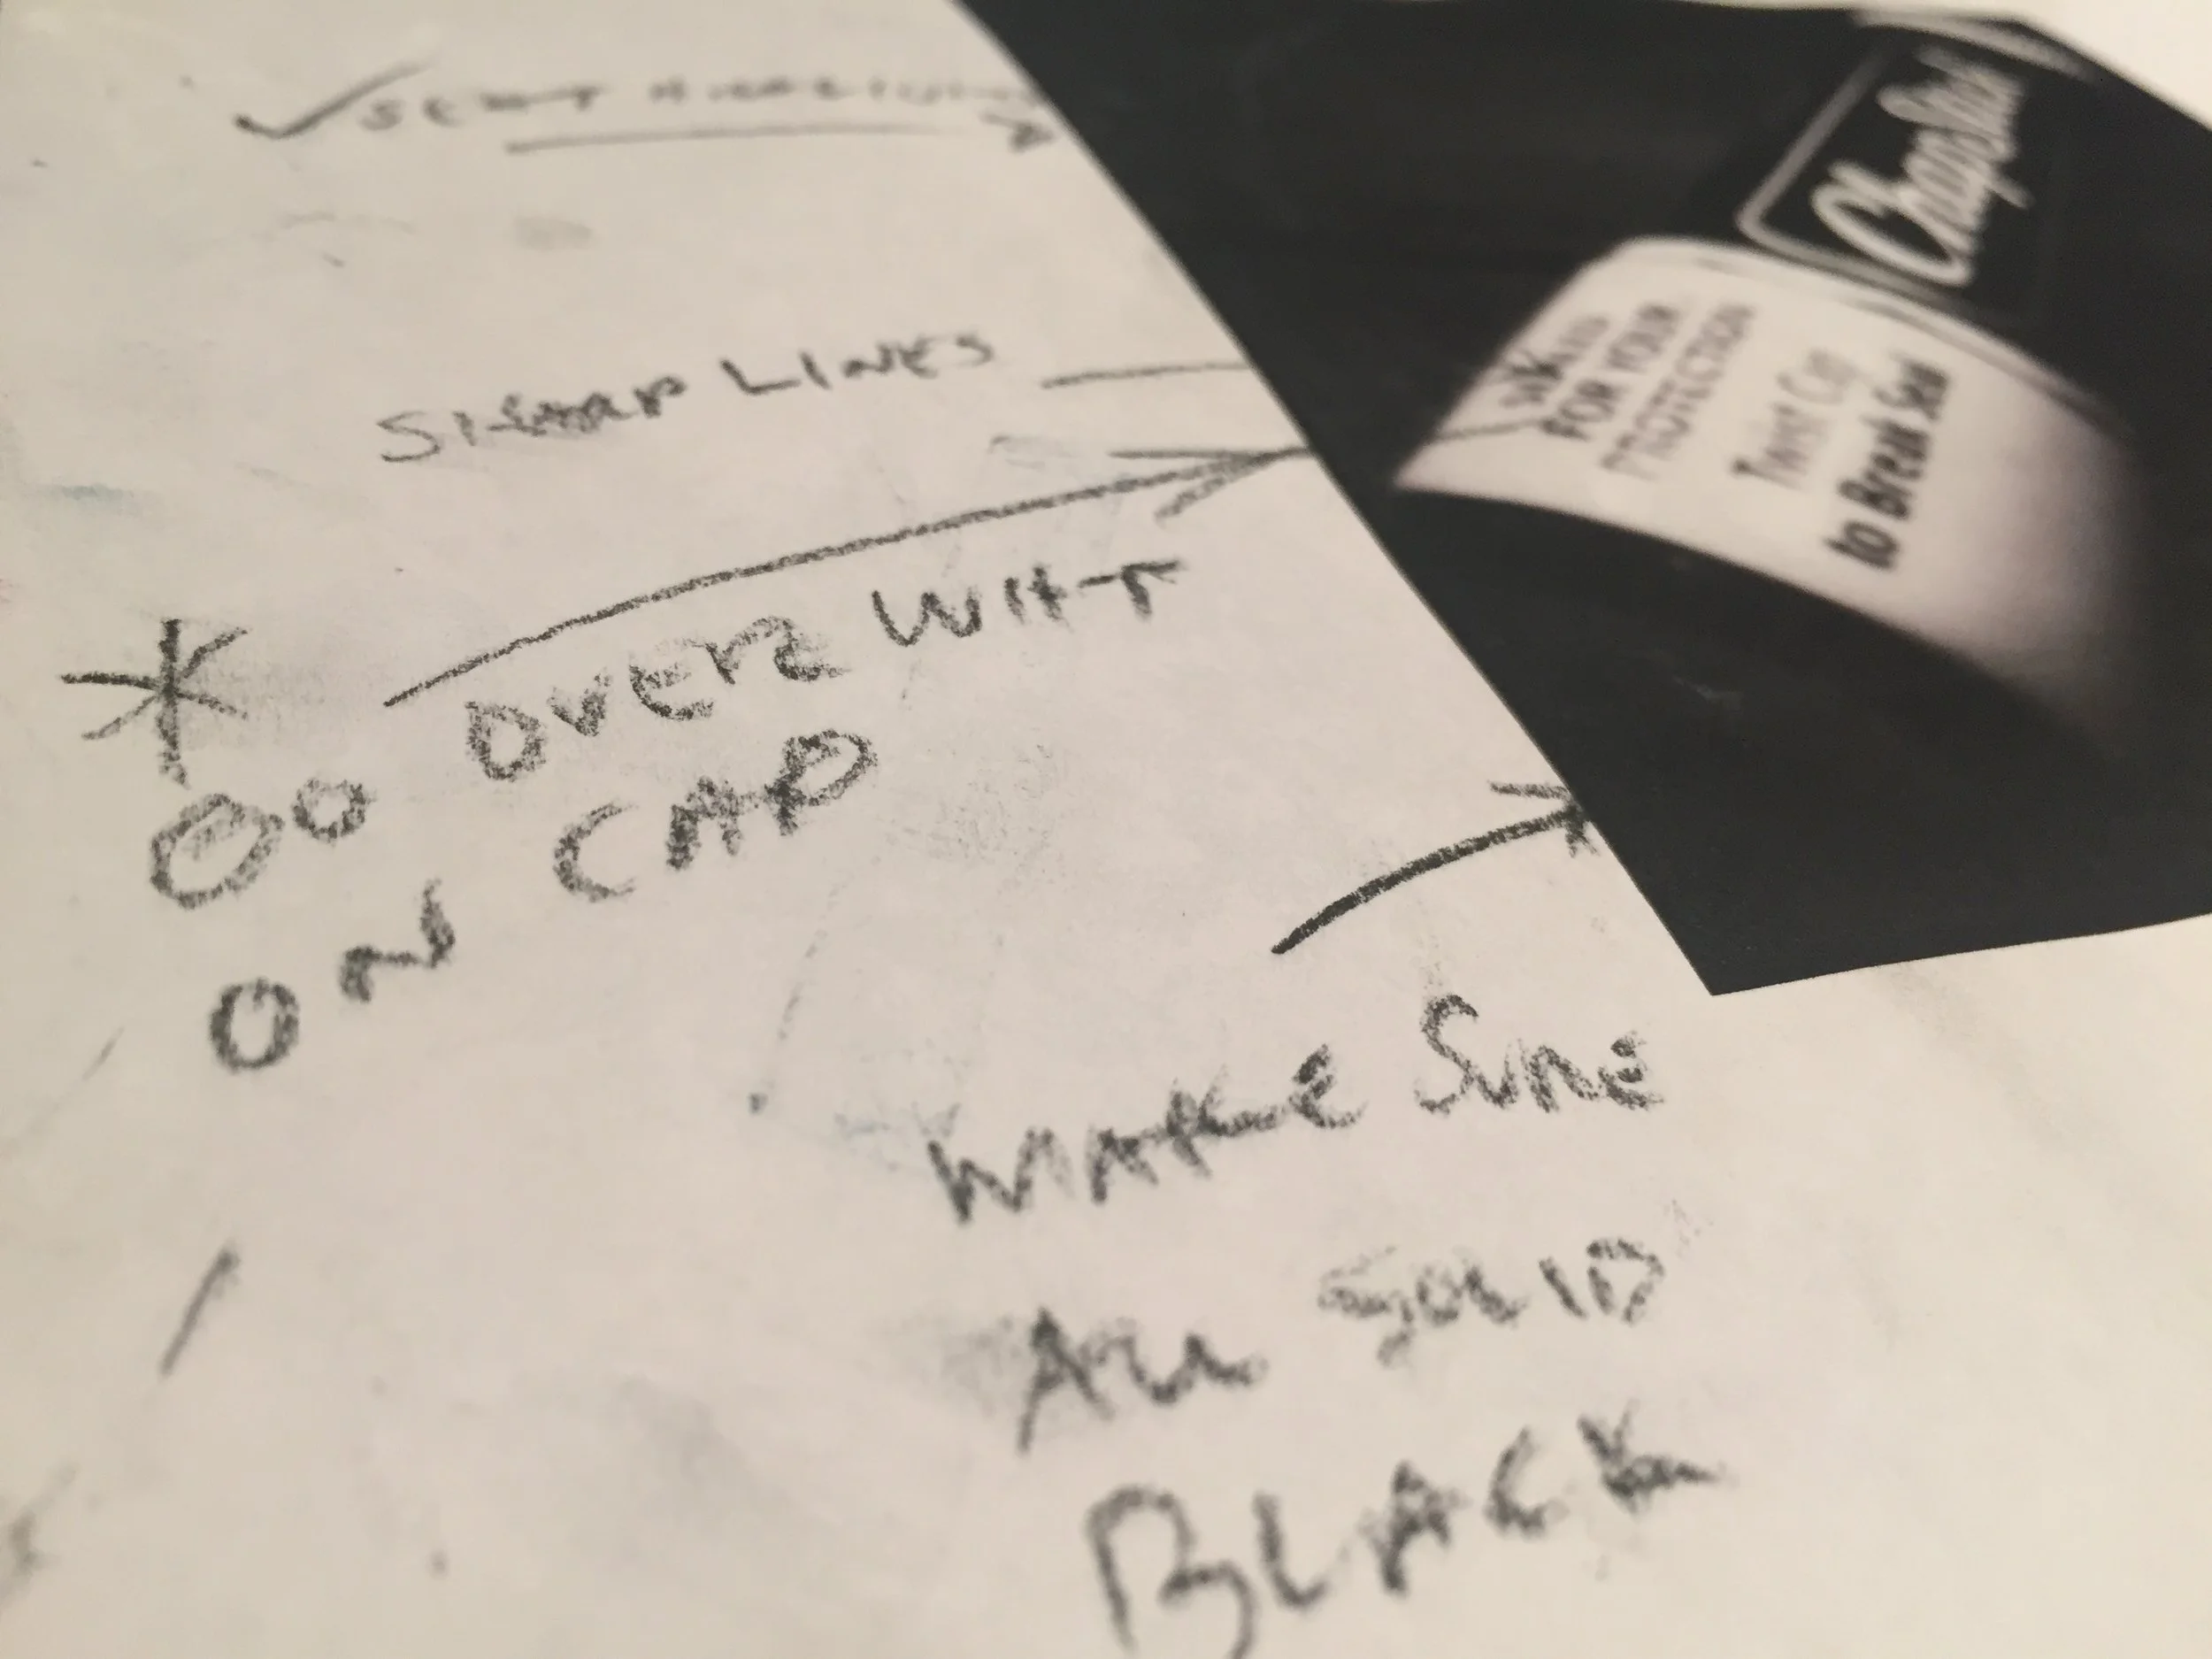 SHARP LINES
GO OVER WHT
ON CAP
MAKE SURE
ALL SOLID
BLACK
ChapStick
FOR YOUR
PROTECTION
Twist Cap
to Break Seal